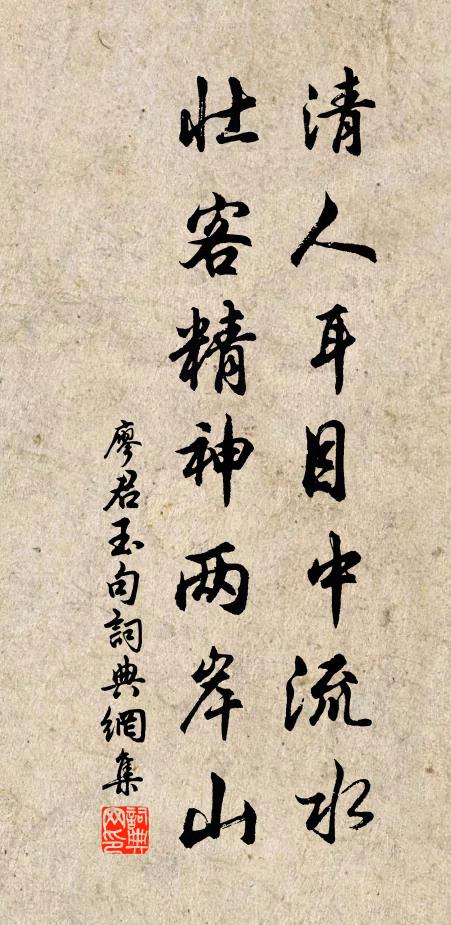 清人耳目中流水
壮客精神两岸山
廖君玉句詞典網集
詞典网印